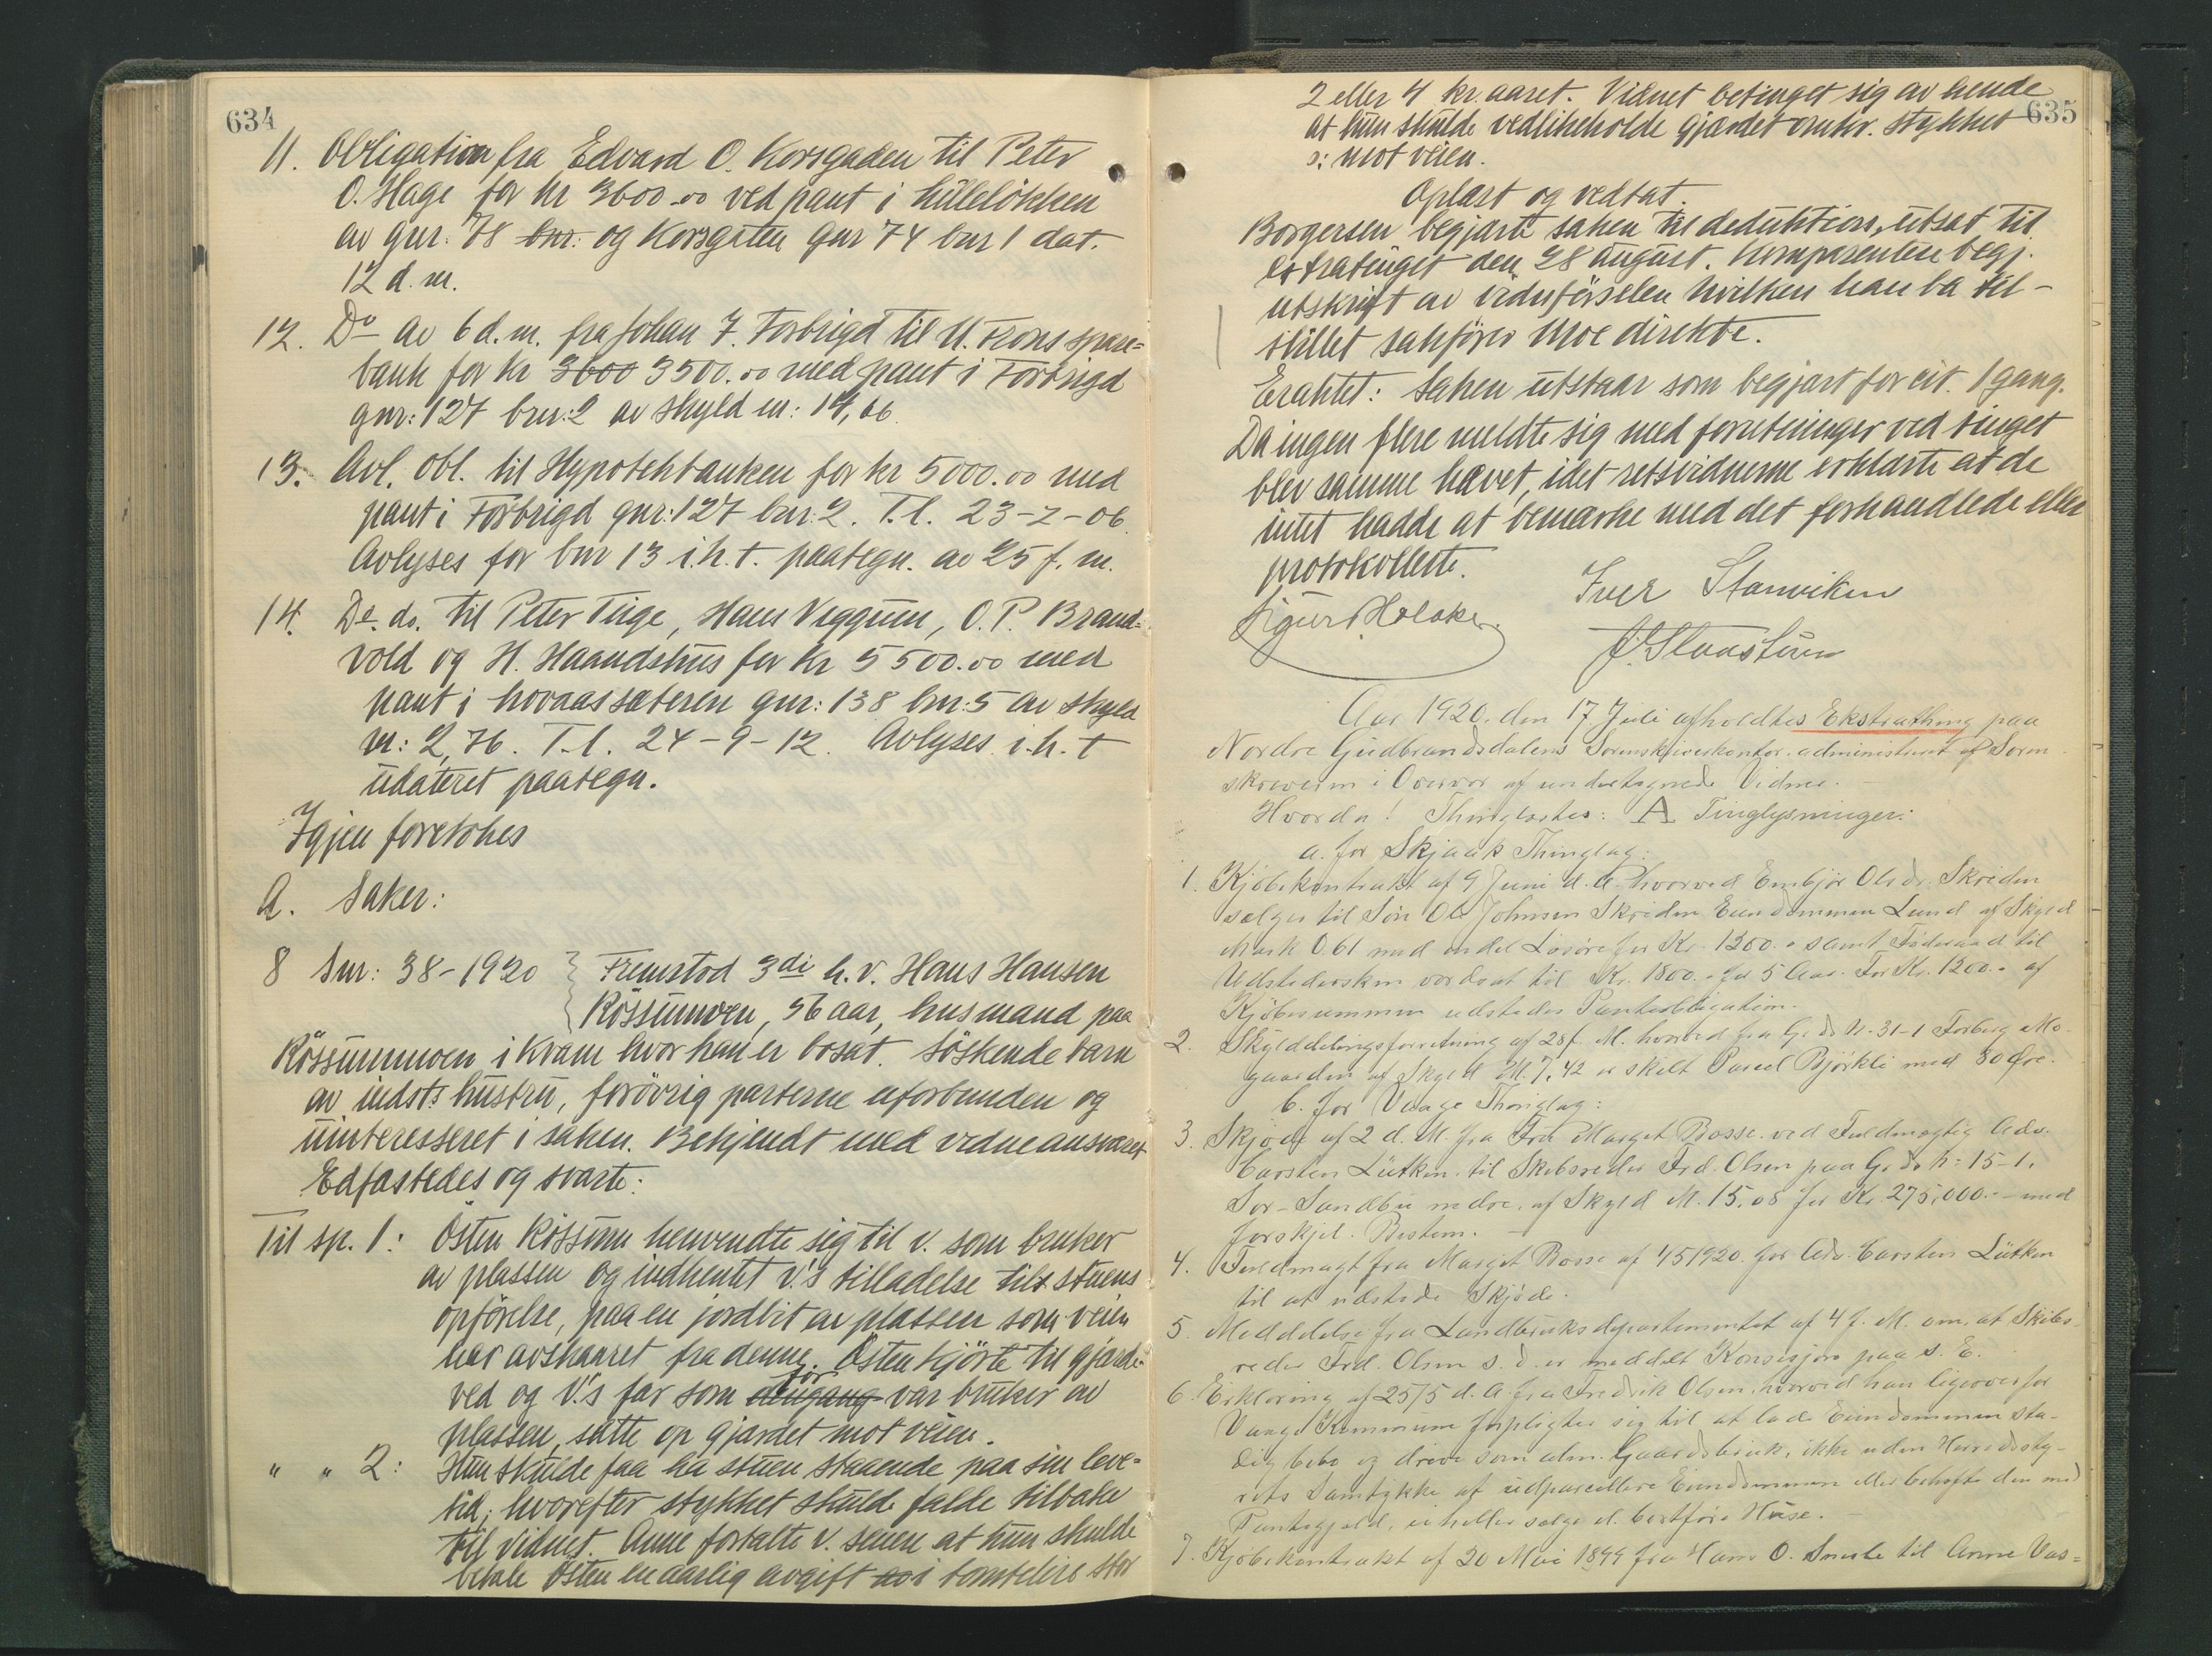 634
11. Obligation fra Edvard O. Korsgaden til Peter
O. Hage for kr 3600.00 ved pant i Lilleløkken
av gnr: 78 bnr: og Korsgaten gnr 74 bnr 1 dat.
12 d. m.
12. Do av 6 d. m. fra Johan F. Forbrigd til N. Frons spare=
bank for kr 3600 3500.00 med pant i Forbrigd
gnr: 127 bnr: 2 av skyld m: 14,06.
13. Avl. obl. til Hypotekbanken for kr 5000.00 med
pant i Forbrigd gnr: 127 bnr: 2. T.l. 23-2-06.
Avlyses for bnr 13 i.h.t. paategn. av 25 f. m.
14. Do. do. til Peter Tige, Hans Veggum, O. P. Brand=
vold og H. Haandshus for kr 5500.00 med
pant i hovaassæteren gnr: 138 bnr: 5 av skyld
m: 2,76. T.l. 24-9-12. Avlyses i.h.t
udateret paategn.
Igjen foretokes
A. Saker:
8 Snr: 38-1920 Fremstod 3di h.v. Hans Hansen
Røssummoen, 56 aar, husmand paa
Røssummoen i Kvam hvor han er bosat. Søskendebarn
av indsts hustru, forøvrig parterne uforbunden og
uinteresseret i saken. Bekjendt med vidneansvaret
Edfæstedes og svarte:
Til sp. 1: Østen Røssum henvendte sig til v. som bruker
av plassen og indhentet v.'s tilladelse til stuens
opførelse, paa en jordbit av plassen som veien
har avskaaret fra denne. Østen kjørte til gjærde-
ved og v.'s far som dengang før var bruker av
plassen, satte op gjærdet mot veien.
" " 2: Hun skulde faa ha stuen staaende paa sin leve=
tid, hvorefter stykket skulde falde tilbake
til vidnet. Anne fortalte v. senere at hun skulde
betale Østen en aarlig avgift av i tomteleie stor
635
2 eller 4 kr. aaret. Vidnet betinget sig av hende
at hun skulde vedlikeholde gjærdet omkr. stykket
o: mot veien.
Oplæst og vedtat.
Borgersen begjærte saken til deduktion, utsat til
extratinget den 28 august. Komparenten begj.
utskrift av vidneførselen hvilken han ba til-
stillet sakfører Moe direkte.
Eraktet: Saken utstaar som begjært for cit. 1 gang.
Da ingen flere meldte sig med forretninger ved tinget
blev samme hævet, idet retsvidnerne erklærte at de
intet hadde at bemærke med det forhandlede eller
protokollerte.
Iver Stamviken
Aar 1920. den 17 Juli afholdtes Ekstrathing paa
Nordre Gudbrandsdalens Sorenskriverkontor administreret af Soren
skriveren i Overvær af undertegnede Vidner.
Hvorda! Thinglæstes: A Tinglysninger:
a. for Skjaak Thinglag:
1. Kjøbekontrakt af 9 Juni d. A. hvorved Embjør Olsdr. Skreden
sælger til Søn Ole Johnsen Skreden Eiendommen Lund af Skyld
Mark 0.61 med endel Løsøre for Kr. 1200.- samt Føderaad til
Udstedersken værdsat til Kr. 1800.- for 5 Aar. For Kr. 1200.- af
Kjøbesummen udstedes Panteobligation.
2. Skylddelingsforretning af 28 f. M. hvorved fra G. & N. 31-1 Forberg Mo-
gaarden af Skyld M. 7,42 er skilt Parcel Bjørkli med 80 Øre.
b. for Vaage Thinglag:
3. Skjøde af 2 d. M. fra Fru Marget Bosse ved Fuldmægtig Adv.
Carsten Lütken til Skibsreder Fred. Olsen paa G. & Nr: 15-1.
Sør-Sandbu m. dre. af Skyld M. 15,08 for Kr. 275,000.- med
forskjel. Bestem.
4. Fuldmagt fra Marget Bosse af 4/5 1920 for Adv. Carsten Lütken
til at udstede Skjøde.
5. Meddelelse fra Landbruksdepartementet af 4 f. M. om, at Skibs-
reder Fred. Olsen s. d. er meddelt Konsesjon paa s. E.
6. Erklæring af 25/5 d. A. fra Fredrik Olsen, hvorved han ligeoverfor
Vaage Kommune forpligter sig til at lade Eiendommen sta-
dig bebo og drive som alm. Gaardsbruk, ikke uden Herredssty-
rets Samtykke at udparcellere Eiendommen eller behefte den med
Pantegjæld, ei heller sælge el. bortføre Huse.
7. Kjøbekontrakt af 20 Mai 1899 fra Hans O. Smele til Anne Vas=